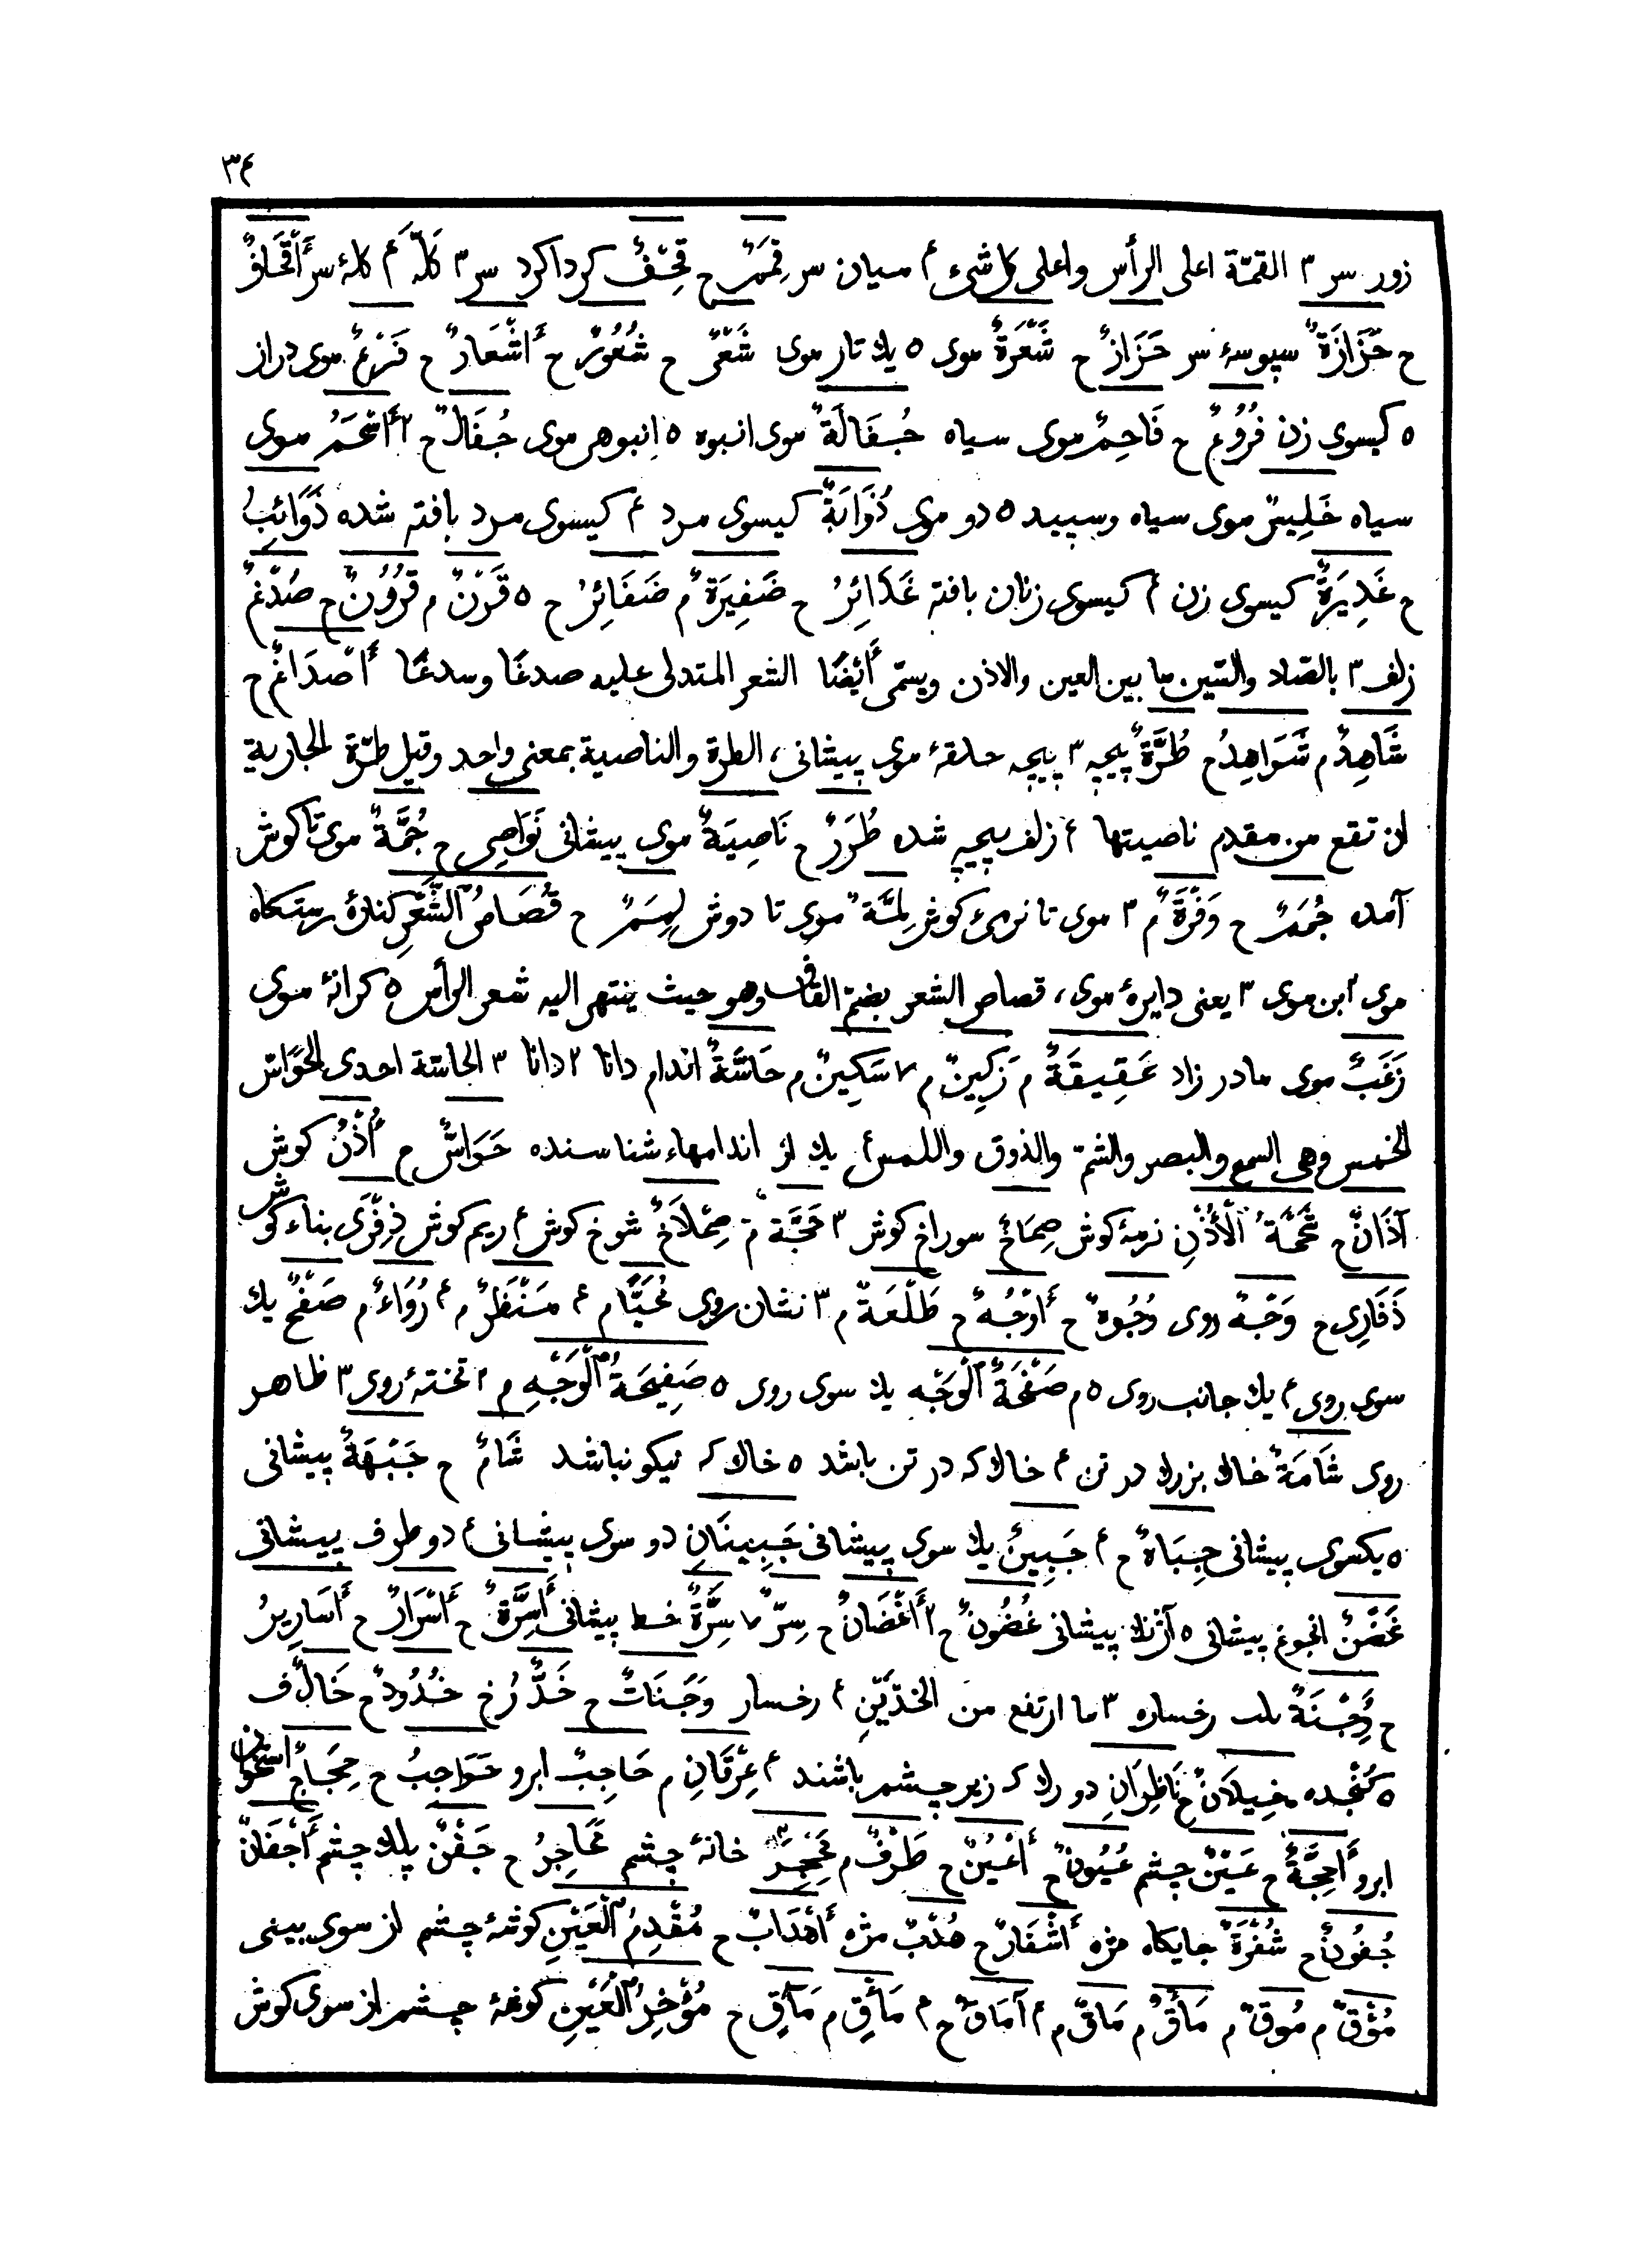 ۳۴
زور سر ۳ القمّة اعلى الرأس واعلى كل شىء ۴ ميان سر قِمَمٌ ح قِحْفٌ كرداكرد سر ۳ كَلَّه ۴ كلهٔ سر أَقْحَافٌ
ح حَزَازَةٌ سپوسهٔ سر حَزَازٌ ح شَعْرَةٌ موى ٥ يك تار موى شَعْرٌ ح شُعُورٌ ح أَشْعَارٌ ح فَرْعٌ موى دراز
٥ كيسوى زن فُرُوعٌ ح فَاحِمٌ موى سياه جُفَالَةٌ موى انبوه ٥ انبوهى موى جُفَالٌ ح ۲ أَسْحَمُ موى
سياه خَلِيسٌ موى سياه وسپيد ٥ دو موى ذُؤَابَةٌ كيسوى مرد ۴ كيسوى مرد بافته شده ذَوَائِبُ
ح غَدِيرَةٌ كيسوى زن ۴ كيسوى زنان بافته غَدَائِرُ ح ضَفِيرَةٌ م ضَفَائِرُ ح ٥ قَرْنٌ م قُرُونٌ ح صُدْغٌ
زلف ۳ بالصّاد والسّين ما بين العين والاذن ويسمّى أَيْضًا الشعر المتدلى عليه صدغًا وسدغًا أَصْدَاغٌ ح
شَاهِدٌ م شَوَاهِدُ ح طُرَّةٌ پيچه ۳ پيچه حلقهٔ موى پيشانى، الطرة والناصية بمعنى واحد وقيل طرّة الجارية
ان تقع من مقدم ناصيتها ۴ زلف پيچيه شده طُرَرٌ ح نَاصِيَةٌ موى پيشانى نَوَاصِى ح جُمَّةٌ موى تا كوش
آمده جُمَمٌ ح وَفْرَةٌ م ۳ موى تا نرمىٔ كوش لِمَّةٌ موى تا دوش لِمَمٌ ح قُصَاصُ الشَّعْرِ كنارهٔ رستكاه
موى ۲ بن موى ۳ يعنى دايرهٔ موى، قصاص الشعر بضمّ القاف وهو حيث ينتهى اليه شعر الرأس ٥ كرانهٔ موى
زَغَبٌ موى مادر زاد عَقِيقَةٌ م زَكِينٌ م ۷ سَكِينٌ م حَاسَّةٌ اندام دانا ۲ دانا ۳ الحاسّة احدى الحَوَاسّ
الخمس وهى السمع والبصر والشمّ والذوق واللمس ۴ يك از اندامهاء شناسنده حَوَاسُّ ح أُذُنٌ كوش
آذَانٌ ح شَحْمَةُ الْأُذُنِ نرمهٔ كوش صِمَاخٌ سوراخ كوش ۳ مَحَجَّةٌ م صِمْلَاخٌ شوخ كوش ۴ ريم كوش ذِفْرَى بناء كوش
ذَفَارِى ح وَجْهٌ روى وُجُوهٌ ح أَوْجُهٌ ح طَلْعَةٌ م ۳ نشان روى مُحَيَّا م ۴ مَنْظَرٌ م ۴ رُوَاءٌ م صَفْحٌ يك
سوى روى ۴ يك جانب روى ٥ م صَفْحَةُ الْوَجْهِ يك سوى روى ٥ صَفِيحَةُ الْوَجْهِ م ۲ تختهٔ روى ۳ ظاهر
روى شَامَةٌ خال بزرك در تن ۴ خال كه در تن باشد ٥ خال كه نيكو نباشد شَامٌ ح جَبْهَةٌ پيشانى
٥ يكسوى پيشانى جِبَاهٌ ح ۴ جَبِينٌ يك سوى پيشانى جَبِينَانِ دو سوى پيشانى ۴ دو طرف پيشانى
غَضْنٌ انجوغ پيشانى ٥ آژنك پيشانى غُضُونٌ ح ۲ أَغْضَانٌ ح سِرٌّ ۷ سِرَّةٌ خط پيشانى أَسِرَّةٌ ح أَسْرَارٌ ح أَسَارِيرُ
ح وَجْنَةٌ رخساره ۳ ما ارتفع من الخدّيْنِ ۴ رخسار وَجَنَاتٌ ح خَدٌّ رُخ خُدُودٌ ح خَالٌ ف
٥ كنجده خِيلَانٌ ح نَاظِرَانِ دو رك كه زير چشم باشند ۴ عِرْقَانِ م حَاجِبٌ ابرو حَوَاجِبُ ح حِجَاجٌ استخوان
ابرو أَحِجَّةٌ ح عَيْنٌ چشم عُيُونٌ ح أَعْيُنٌ ح طَرْفٌ م مَحْجِرٌ خانهٔ چشم مَحَاجِرُ ح جَفْنٌ پلك چشم أَجْفَانٌ
جُفُونٌ ح شُفْرَةٌ جايكاه مژه أَشْفَارٌ ح هُدْبٌ مژه أَهْدَابٌ ح مُقْدِمُ الْعَيْنِ كوشهٔ چشم از سوى بينى
مُؤْقٌ م مُوقٌ م مَأْقٌ م مَاقٌ م ۴ آمَاقٌ ح ۴ مَأْقِى م مَآقِى ح مُؤْخِرُ الْعَيْنِ كوشهٔ چشم از سوى كوش